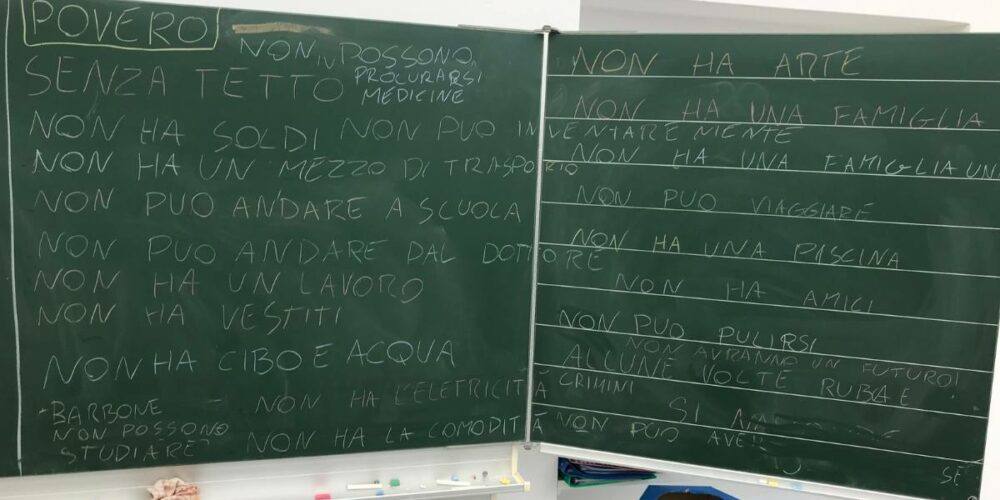 POVERO
NON POSSONO
IN PROCURARSI
MEDICINE
SENZA TETTO
NON HA SOLDI
NON PUO INVENTARE NIENTE
NON HA UN MEZZO DI TRASPORIO
NON PUO ANDARE A SCUOLA
NON PUO ANDARE DAL DOTTORE
NON HA UN LAVORO
NON HA VESTITI
NON HA CIBO E ACQUA
NON HA L'ELETRICITÀ
BARBONE
NON POSSONO
STUDIARE?
NON HA LA COMODITÀ
NON HA ARTE
NON HA UNA FAMIGLIA
NON HA UNA FAMIGLIA UN
NON PUO VIAGGIARE
NON HA UNA PISCINA
NON HA AMICI
NON PUO PULIRSI
NON AVRANNO UN FUTURO!
ALLUNE VOLTE RUBA E
CRIMINI
SI
NON PUO
SE